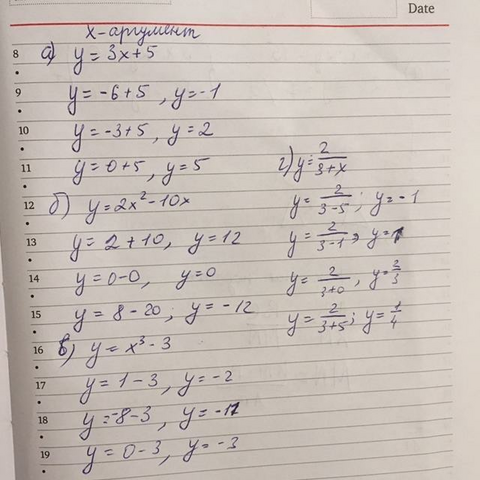 Date
x-аргумент
8 а) y = 3x+5
9 y = -6+5 , y = -1
10 y = -3+5 , y = 2
11 y = 0+5 , y = 5
12 б) y = 2x² - 10x
13 y = 2+10, y = 12
14 y = 0-0, y = 0
15 y = 8-20; y = -12
16 в) y = x³ - 3
17 y = 1-3 , y = -2
18 y = -8-3 , y = -11
19 y = 0-3 , y = -3
г) y = 2/(3+x)
y = 2/(3-5) ; y = -1
y = 2/(3-1) , y = 1
y = 2/(3+0) , y = 2/3
y = 2/(3+5) ; y = 1/4